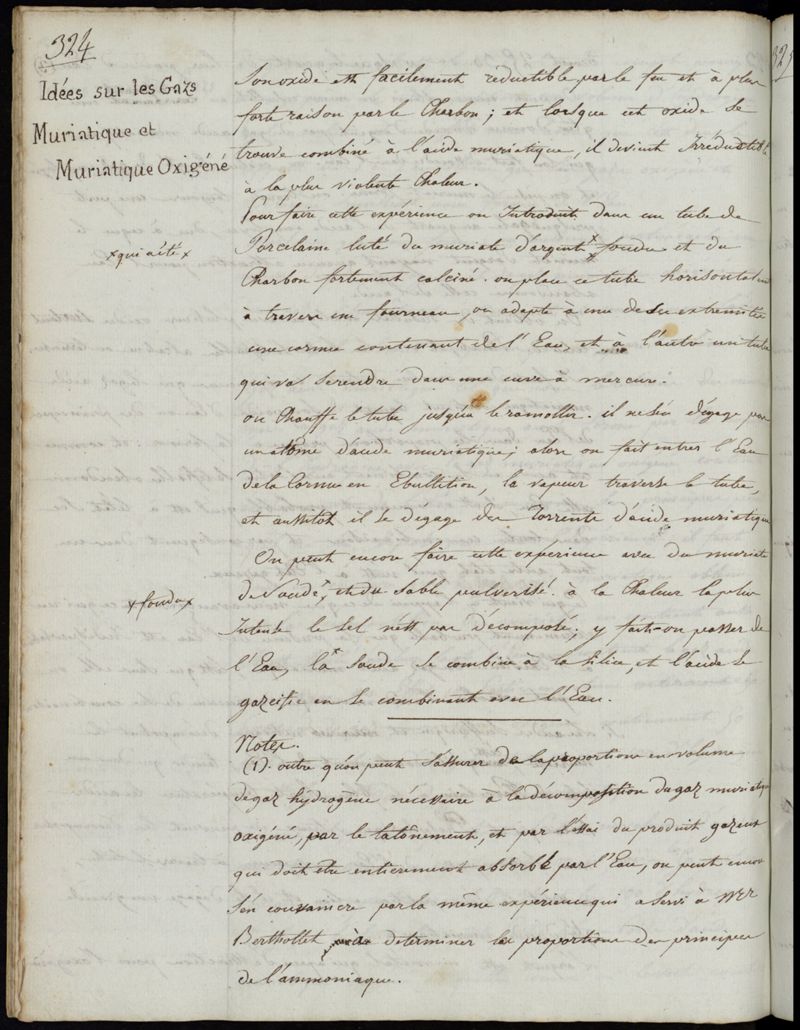 324
Idées sur les Gazs
Muriatique et
Muriatique Oxigéné
Son oxide est facilement réductible par le feu et à plus
forte raison par le Charbon; et lorsque cet oxide se
trouve combiné à l'acide muriatique, il devient Irréductible
à la plus violente Chaleur.
Pour faire cette expérience on Introduit dans un tube de
x qui a été x
Porcelaine luté du muriate d'argent x fondu et du
Charbon fortement calciné. on place ce tube horisontalement
à travers un fourneau, on adapte à une de ses extremités
une cornue contenant de l'Eau, et à l'autre un tube
qui va se rendre dans une cuve à mercure.
on Chauffe le tube jusqu'à le ramollir. il ne s'en dégage pas
un atôme d'acide muriatique; alors on fait entrer l'Eau
de la Cornue en Ebullition, la vapeur traverse le tube,
et aussitot il se dégage des Torrents d'acide muriatique
On peut encore faire cette expérience avec du muriate
x fondu x
de Soude x, et du Sable pulverisé. à la Chaleur la plus
Intense le Sel n'est pas décomposé; y fait-on passer de
l'Eau, la Soude se combine à la Silice, et l'acide se
gazeifie en se combinant avec l'Eau.
Notes.
(1). outre qu'on peut s'assurer de la proportion en volume
de gaz hydrogène nécessaire à la décomposition du gaz muriatique
oxigéné, par le tatônement, et par l'essai du produit gazeux
qui doit être entierement absorbé par l'Eau, on peut encor
s'en convaincre par la même expérience qui a servi à Mr
Berthollet determiner la proportion des principes
de l'ammoniaque.
325